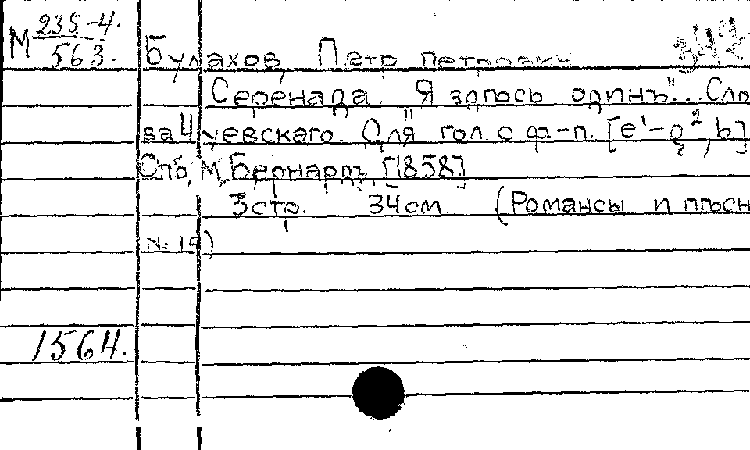 М 235-4. / 563.
Булахов, Петр Петрович
342
Серенада. "Я здѣсь одинъ"... Сло
ва Чуевскаго. Для гол. с ф-п. [e¹-g², b]
Спб, М. Бернардъ, [1858]
3 стр. 34 см (Романсы и пѣсн
№ 15)
1564.